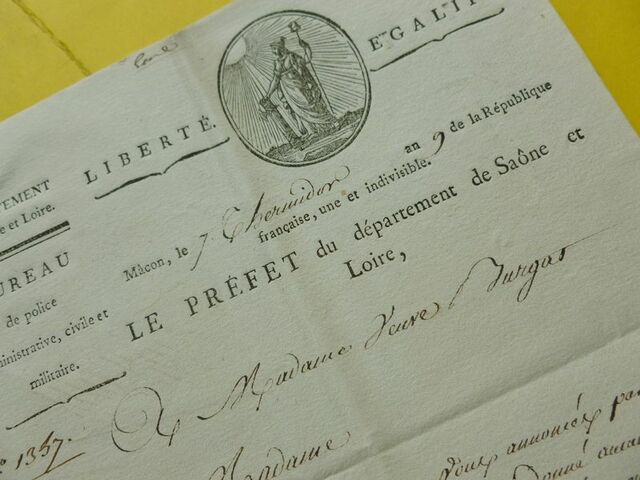 LIBERTÉ. EGALIT
TEMENT
e et Loire.
UREAU
de police
ministrative, civile et
militaire.
Mâcon, le 7. Thermidor an 9 de la République
française, une et indivisible.
LE PRÉFET du département de Saône et
Loire,
A Madame Veuve Burgas
1357.
Madame
Vous annoncéz par
Donné